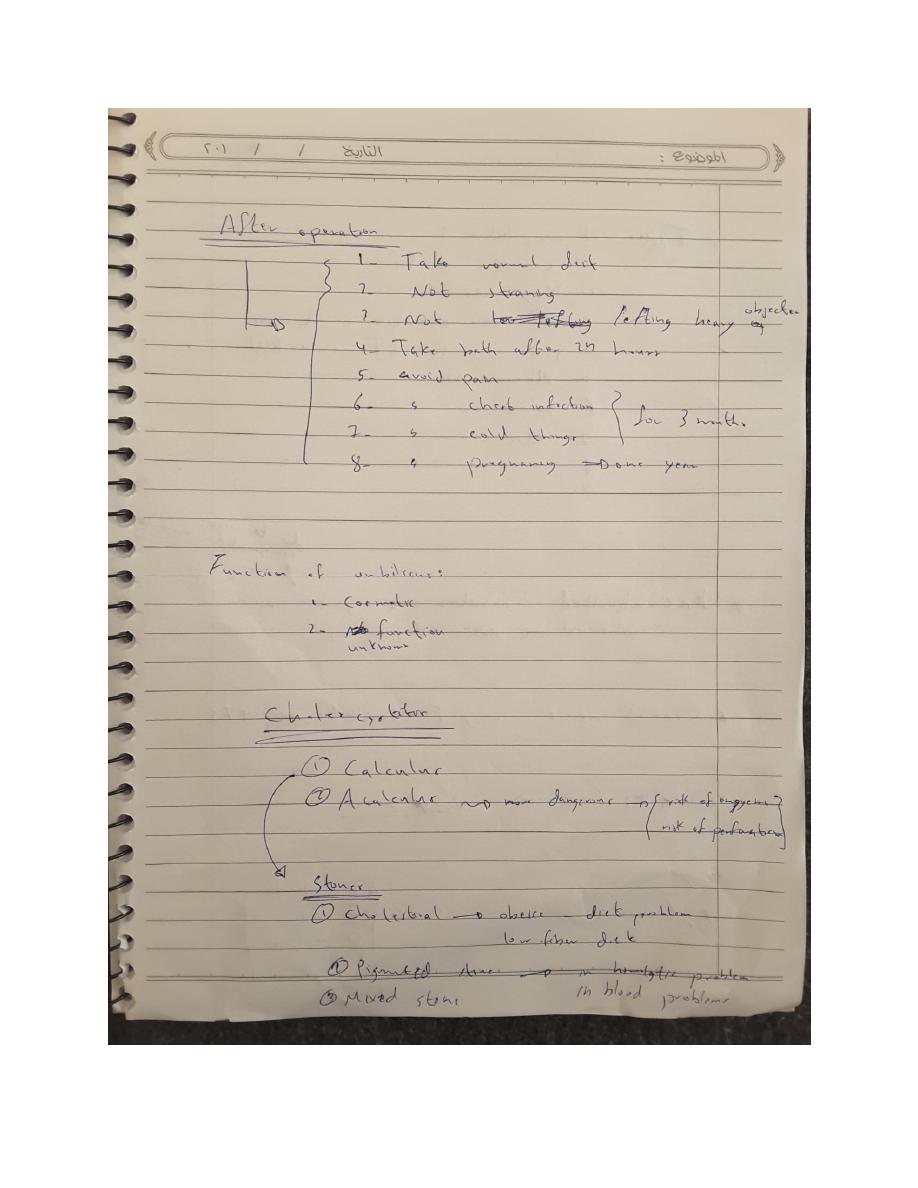 الموضوع :
التاريخ / / ٢٠١
After operation
1- Take normal deit
2- Not straning
3- Not lefting heavy objectes
4- Take bath after 24 hours
5- avoid pain
6- " chest infection
7- " cold things
for 3 month.
8- " pregnancy → one year
Function of umbilicus:
1- Cosmetic
2- function
unknown
Cholecystitis
① Calculus
② Acalculus → more dangerous → risk of empyema
risk of perforation
Stones
① Cholestral → obeise - diet problem
low fiber diet
② Pigmented stone → in hemolytic problem
in blood problems
③ Mixed stone